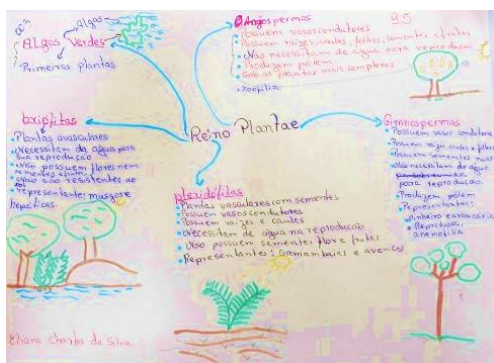 Algas
Algas Verdes
Primeiras Plantas
Angiospermas
Possuem vasos condutores
Possuem raizes, caules, folhas, sementes e frutos
Não necessitam de água para reprodução
Produzem pólem
São as plantas mais completas
Zoofilia
Reino Plantae
briófitas
Plantas avasculares
Necessitam da água para
sua reprodução
Não possuem flores nem
sementes e frutos
Não são resistentes ao
sol
representante: musgos e
hepáticas
pteridófitas
Plantas vasculares com sementes
Possuem vasos condutores
Possuem raizes e caules
Necessitam de água na reprodução
Não possuem sementes flor e frutos
Representantes: samambaias e avencas
Gimnospermas
Possuem vasos condutores
Possuem raiz, caule e folhas
Possuem sementes nuas
Não necessitam de água
para reprodução.
Produzem pólem
Representantes:
Pinheiro e araucária
Reprodução
anemofilia
Eliane Charles da Silva